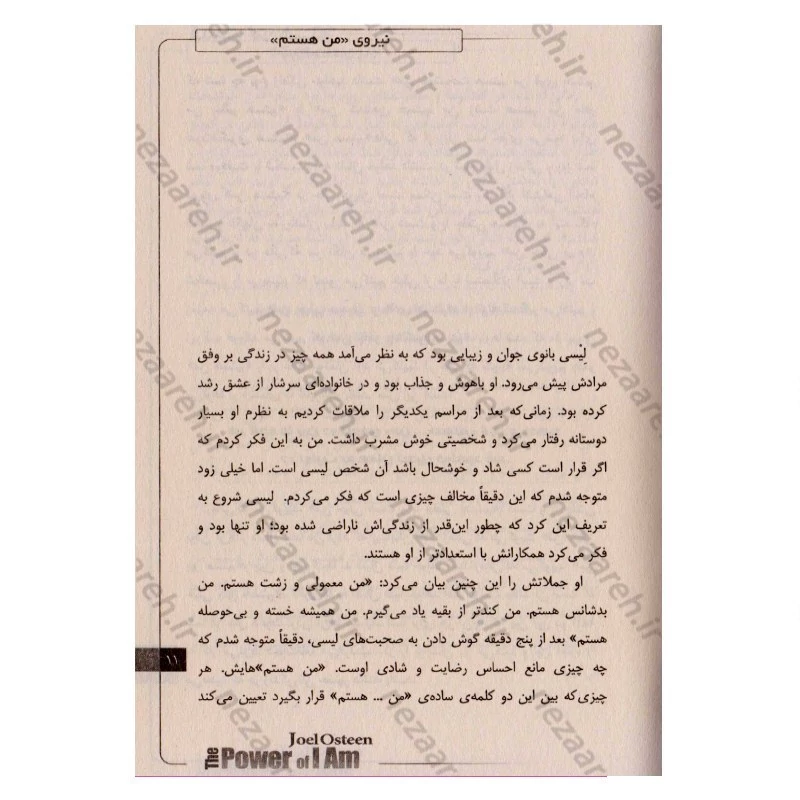 نیروی «من هستم»
لِیْسی بانوی جوان و زیبایی بود که به نظر می‌آمد همه چیز در زندگی بر وفق
مرادش پیش می‌رود. او باهوش و جذاب بود و در خانواده‌ای سرشار از عشق رشد
کرده بود. زمانی‌که بعد از مراسم یکدیگر را ملاقات کردیم به نظرم او بسیار
دوستانه رفتار می‌کرد و شخصیتی خوش مشرب داشت. من به این فکر کردم که
اگر قرار است کسی شاد و خوشحال باشد آن شخص لیسی است. اما خیلی زود
متوجه شدم که این دقیقاً مخالف چیزی است که فکر می‌کردم. لیسی شروع به
تعریف این کرد که چطور این‌قدر از زندگی‌اش ناراضی شده بود؛ او تنها بود و
فکر می‌کرد همکارانش با استعدادتر از او هستند.
او جملاتش را این چنین بیان می‌کرد: «من معمولی و زشت هستم. من
بدشانس هستم. من کندتر از بقیه یاد می‌گیرم. من همیشه خسته و بی‌حوصله
هستم» بعد از پنج دقیقه گوش دادن به صحبت‌های لیسی، دقیقاً متوجه شدم که
چه چیزی مانع احساس رضایت و شادی اوست. «من هستم»هایش. هر
چیزی‌که بین این دو کلمه‌ی ساده‌ی «من ... هستم» قرار بگیرد تعیین می‌کند
۱۱
Joel Osteen
The Power of I Am
nezaareh.ir